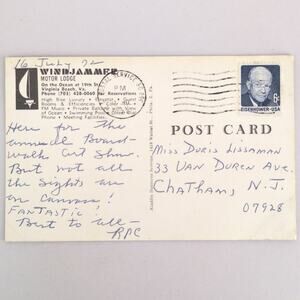 16 July 72
WINDJAMMER
MOTOR LODGE
On the Ocean at 19th St.
Virginia Beach, Va.
Phone (703) 428-0060 for Reservations
High Rise Luxury • Elevator • Guest
Rooms & Efficiencies • Color TV
FM Music • Private Balcony with View
of Ocean • Swimming Pool
Phone • Meeting Facilities
PM
EISENHOWER·USA
POST CARD
Here for the
annual Board-
walk Art Show.
But not all
the sights are
on canvas!
FanTastic!
Best to all—
RPC
Miss Doris Lissaman
33 Van Duren Ave.
Chatham, N.J.
07928